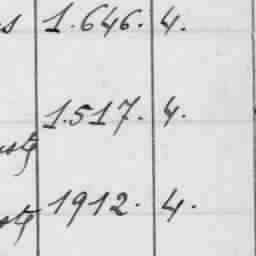 s 1.646. 4.
1.517. 4.
1912. 4.